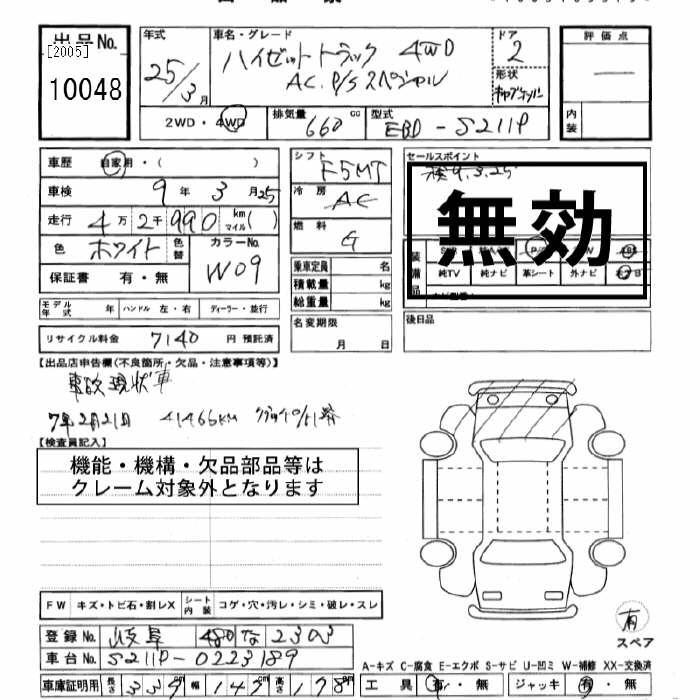 出品No.
[2005]
10048
年式
25/3月
車名・グレード
ハイゼットトラック 4WD
AC.P/Sスペシャル
ドア
2
形状
評価点
2WD・4WD
排気量
660
cc
型式
EBD-S211P
内装
車歴
自家用・(　)
車検
9年3月25
走行
4万2千990
km
マイル( )
色
ホワイト
色替
カラーNo.
W09
保証書 有・無
シフト
F5MT
冷房
AC
燃料
G
乗車定員 名
積載量 kg
総重量 kg
セールスポイント
検9.3.25
無効
純TV
純ナビ
革シート
外ナビ
モデル年式 年
ハンドル 左・右
ディーラー・並行
名変期限
月 日
後日品
リサイクル料金 7140 円 預託済
【出品店申告欄(不良箇所・欠品・注意事項等)】
現状車
7年2月21日 41466KM
【検査員記入】
機能・機構・欠品部品等は
クレーム対象外となります
FW キズ・トビ石・割レX
シート内装 コゲ・穴・汚レ・シミ・破レ・スレ
登録No. 岐阜 480 な 2303
車台No. S211P-0223189
有
スペア
車庫証明用 長さ 339cm 幅 147cm 高さ 178cm
A-キズ C-腐食 E-エクボ S-サビ U-凹ミ W-補修 XX-交換済
工具 有・無 ジャッキ 有・無